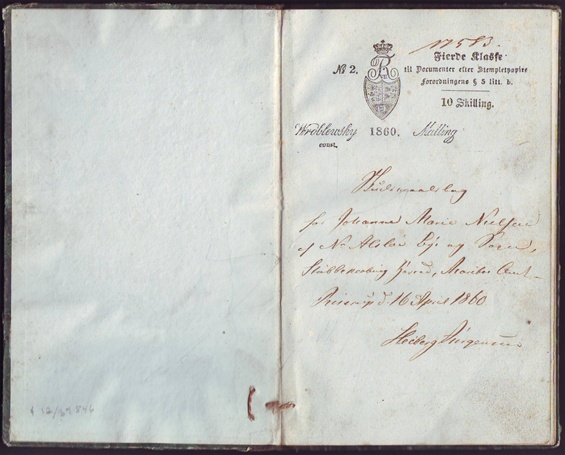 17583.
№ 2.
Fierde Klasse
til Documenter efter Stempletpapirs
Forordningens § 5 litr. b.
10 Skilling.
Wroblewsky 1860. Malling
const.
Skudsmaalsbog
for Johanne Marie Nielsen
af Nr Alslev Bye og Sogn,
Stubbekøbing Herred, Maribo Amt
d 16 April 1860
Heiberg Jürgensen